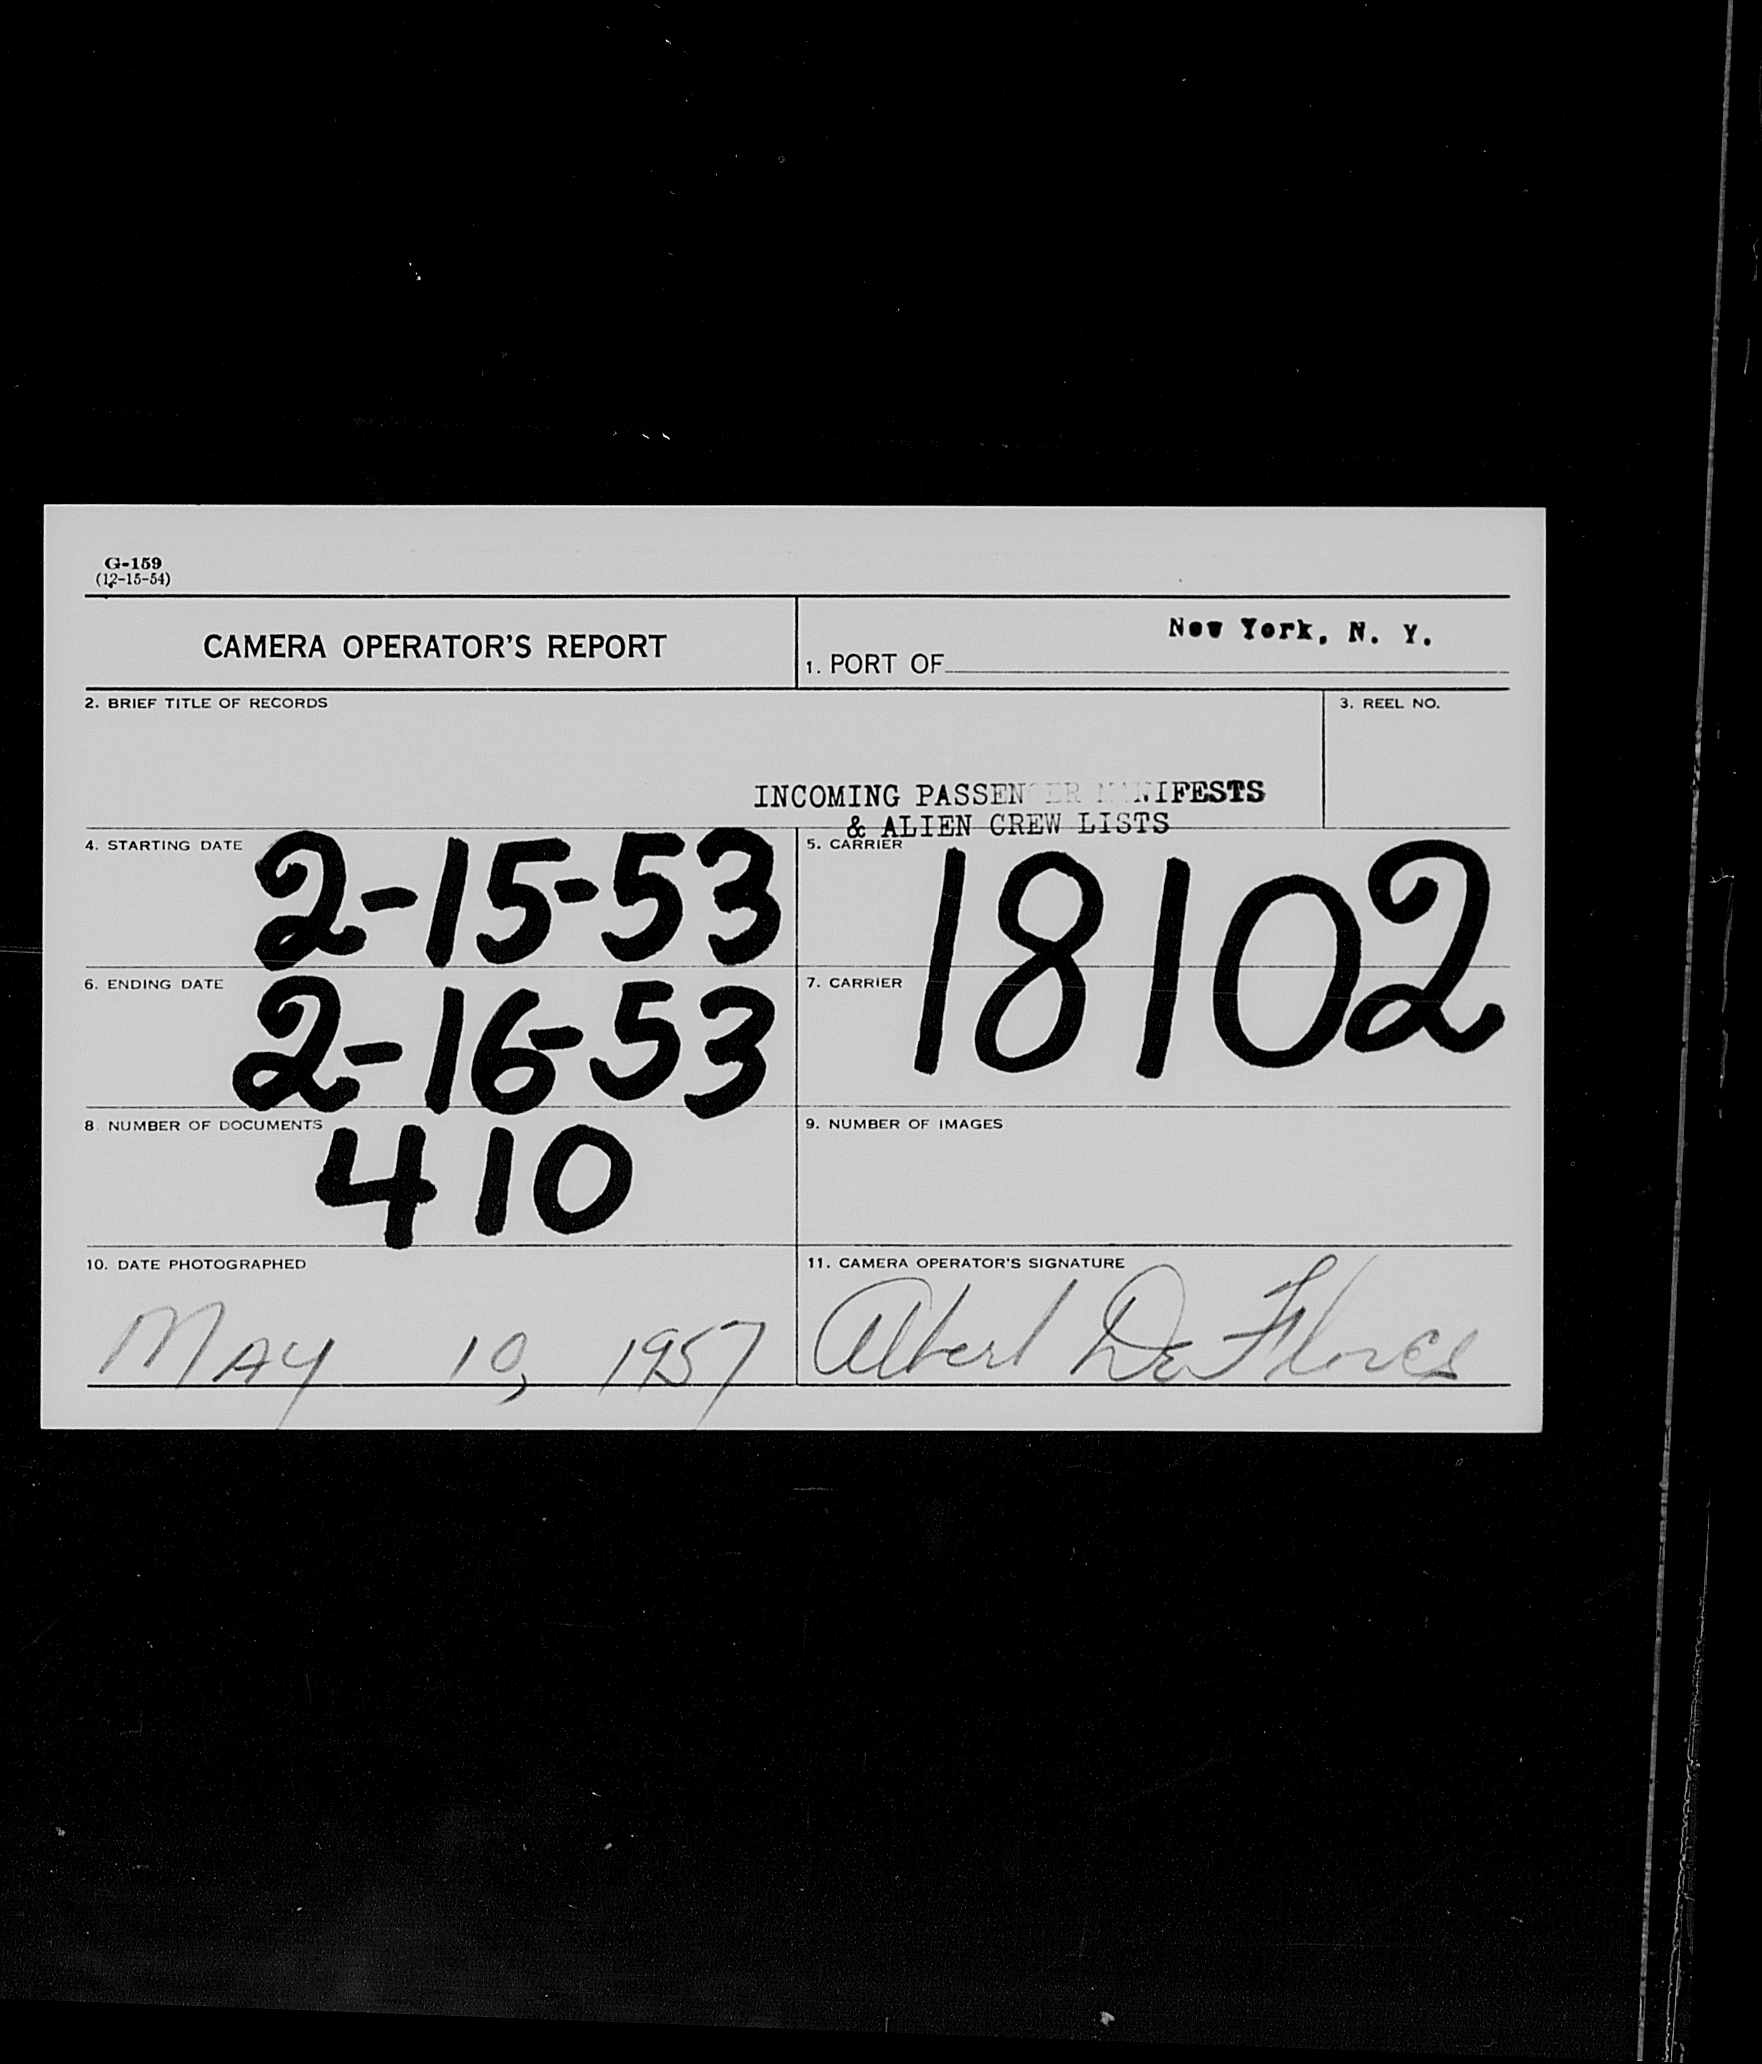 G-159
(12-15-54)
CAMERA OPERATOR'S REPORT
1. PORT OF New York, N. Y.
2. BRIEF TITLE OF RECORDS
3. REEL NO.
INCOMING PASSENGER MANIFESTS
& ALIEN CREW LISTS
4. STARTING DATE 2-15-53
5. CARRIER
18102
6. ENDING DATE 2-16-53
7. CARRIER
8. NUMBER OF DOCUMENTS 410
9. NUMBER OF IMAGES
10. DATE PHOTOGRAPHED
MAY 10, 1957
11. CAMERA OPERATOR'S SIGNATURE
Albert De Flores